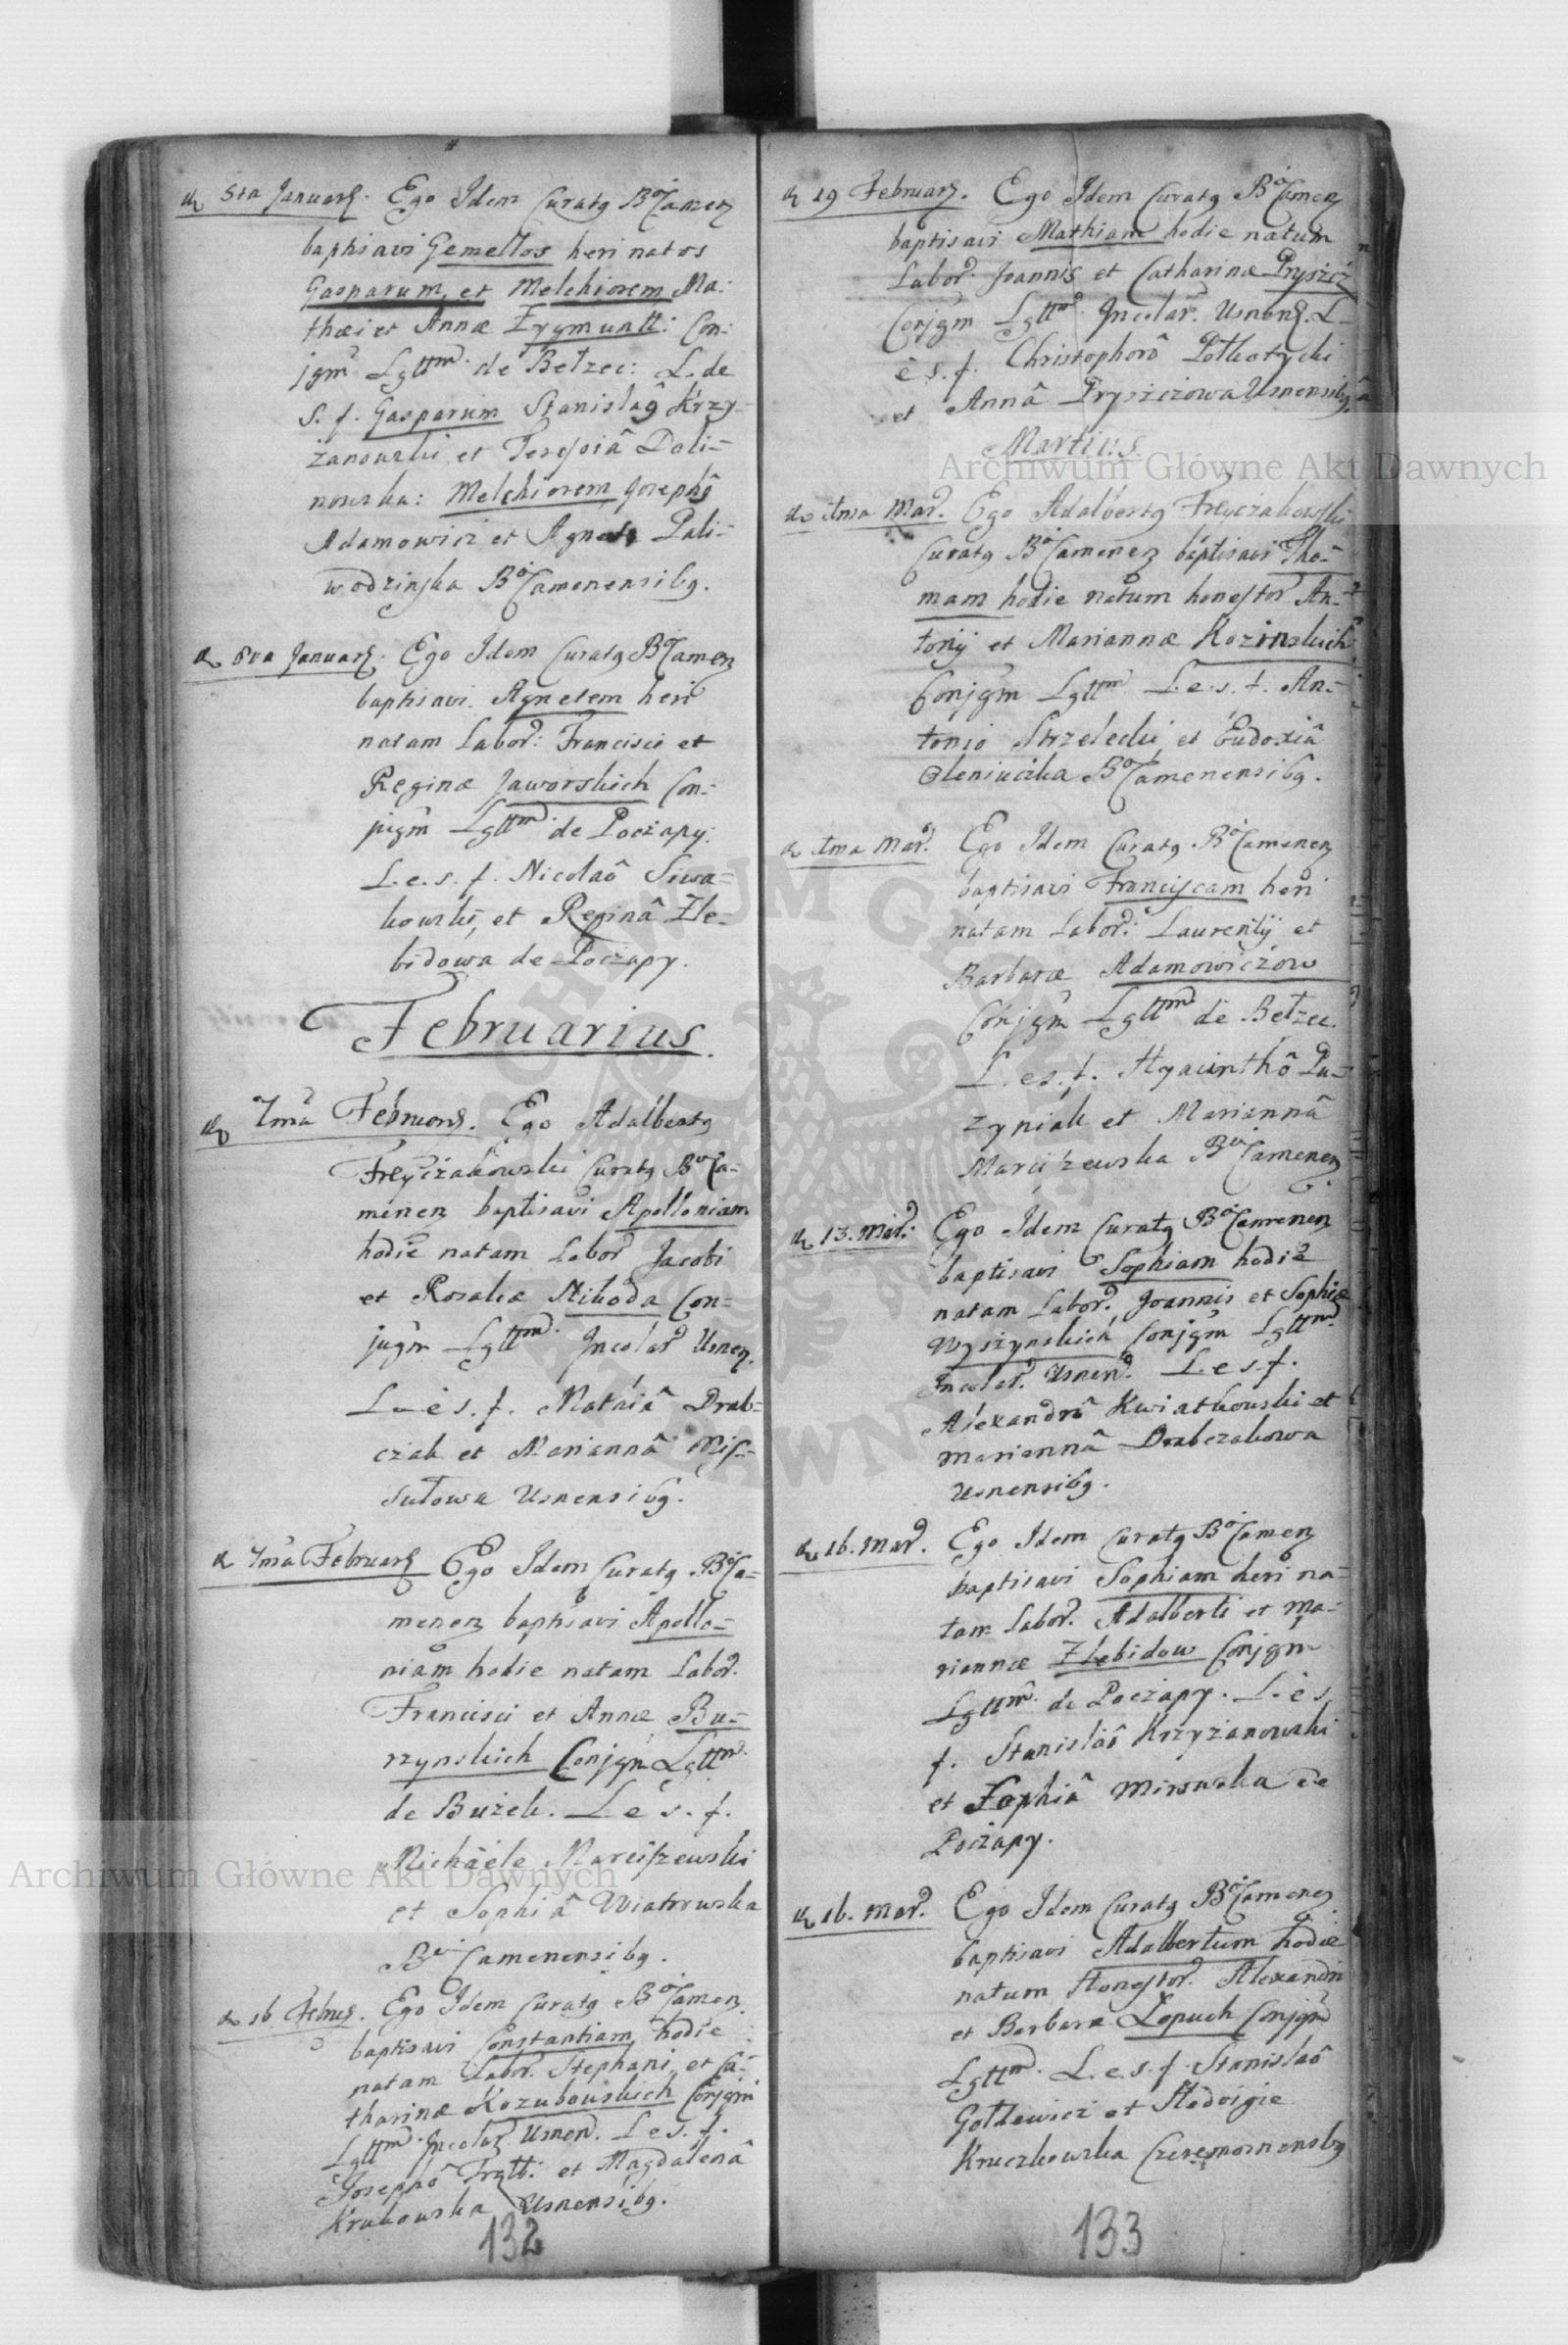 5ta Januarÿ. Ego Idem Curatg Bô Camenz
baptisavi Gemellos heri natos
Gasparum, et Melchiorem Ma:
thæi et Annæ Zygmuntt: Con:
jgm Lgttm. de Bełzec: L. de
s. f. Gasparum Stanislaô Krzy=
żanowski et Teressiâ Doli=
nowska: Melchiorem Josephô
Adamowicz et Agnete Pali=
wodzinska Bô Camenensibg.
8va Januarÿ. Ego Idem Curatg Bô Camenz
baptisavi Agnetem heri
natam Labor: Francisci et
Reginæ Jaworskich Con:
jugm Lgttm. de Poczapy:
L. e. s. f. Nicolaô Siwa=
kowski, et Reginâ Zle=
bidowa de Poczapy.
Februarius.
7ma Februarÿ. Ego Adalbertg
Freyczakowski Curatg Bô Ca=
menenz baptisavi Apolloniam
hodie natam Labor Jacobi
et Rosaliæ Nikoda Con=
jugm Lgttm. Incolar Usnen.
L e s. f. Mathiâ Drab=
czak et Mariannâ Mis=
sułowa Usnensibg.
7ma Februarÿ Ego Idem Curatg Bô Ca=
menenz baptisavi Apollo=
niam hodie natam Labor.
Francisci et Annæ Bu=
rzynskich Conjgm Lgttm.
de Bużek. L e s. f.
Michaële Marciszewski
et Sophiâ Wiatrowska
Bô Camenensibg.
16 Febrÿ. Ego Idem Curatg Bô Camenz
baptisavi Constantiam hodie
natam Labor. Stephani et Ca=
tharinæ Kozubowskich Conjgm
Lgttm. Incolar. Usnen. L e s. f.
Josephô Frytt: et Magdalenâ
Krukowska Usnensibg.
132
19 Februarÿ. Ego Idem Curatg Bô Camenz
baptisavi Mathiam hodie natum
Labor. Joannis et Catharinæ Pryszcz
Conjgm Lgttm. Incolar. Usnens. L
e s. f. Christophorô Potkotycki
et Annâ Pryszczowa Usnensibg
Martius.
Mar. Ego Adalbertg Freyczakowski
Curatg Bô Camenenz baptisavi Tho=
mam hodie natum honestor An=
tonij et Mariannæ Kozinskich
Conjgm Lgttm L. e. s. f. An=
toniô Strzelecki et Eudoxiâ
Oleniuczka Bô Camenensibg.
Mar. Ego Idem Curatg Bô Camenenz
baptisavi Franciscam heri
natam Labor: Laurentij et
Barbaræ Adamowiczow
Conjgm Lgttm de Bełzec.
L. e s. f. Hyacinthô Pu=
zyniak et Mariannâ
Marciszewska Bô Camenenz
13. Mar: Ego Idem Curatg Bô Camenenz
baptisavi Sophiam hodie
natam Labor. Joannis et Sophiæ
Wyszynskich Conjgm Lgttm.
Incolar. Usnen. L. e s. f.
Alexandrô Kwiatkowski et
Mariannâ Drabczakowa
Usnensibg.
16. Mar. Ego Idem Curatg Bô Camenz
baptisavi Sophiam heri na=
tam Labor. Adalberti et Ma=
riannæ Zlebidow Conjgm
Lgttm. de Poczapy. L. e s
f. Stanislaô Krzyżanowski
et Zophiâ Mirowska de
Poczapy.
16. Mar. Ego Idem Curatg Bô Camenenz
baptisavi Adalbertum hodie
natum Honestor. Alexandri
et Barbaræ Łopuch Conjgm
Lgttm. L. e. s. f. Stanislaô
Gołdewicz et Hedvigie
Kruczkowska Czeremosnensibg
133
Archiwum Główne Akt Dawnych
Archiwum Główne Akt Dawnych